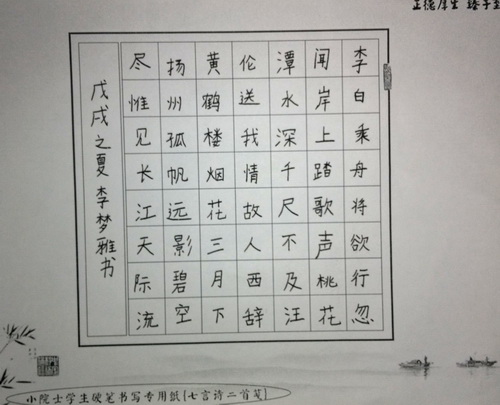 正德厚生 臻于至
李白乘舟将欲行忽
闻岸上踏歌声桃花
潭水深千尺不及汪
伦送我情故人西辞
黄鹤楼烟花三月下
扬州孤帆远影碧空
尽惟见长江天际流
戊戌之夏李梦雅书
小院士学生硬笔书写专用纸[七言诗二首笺]